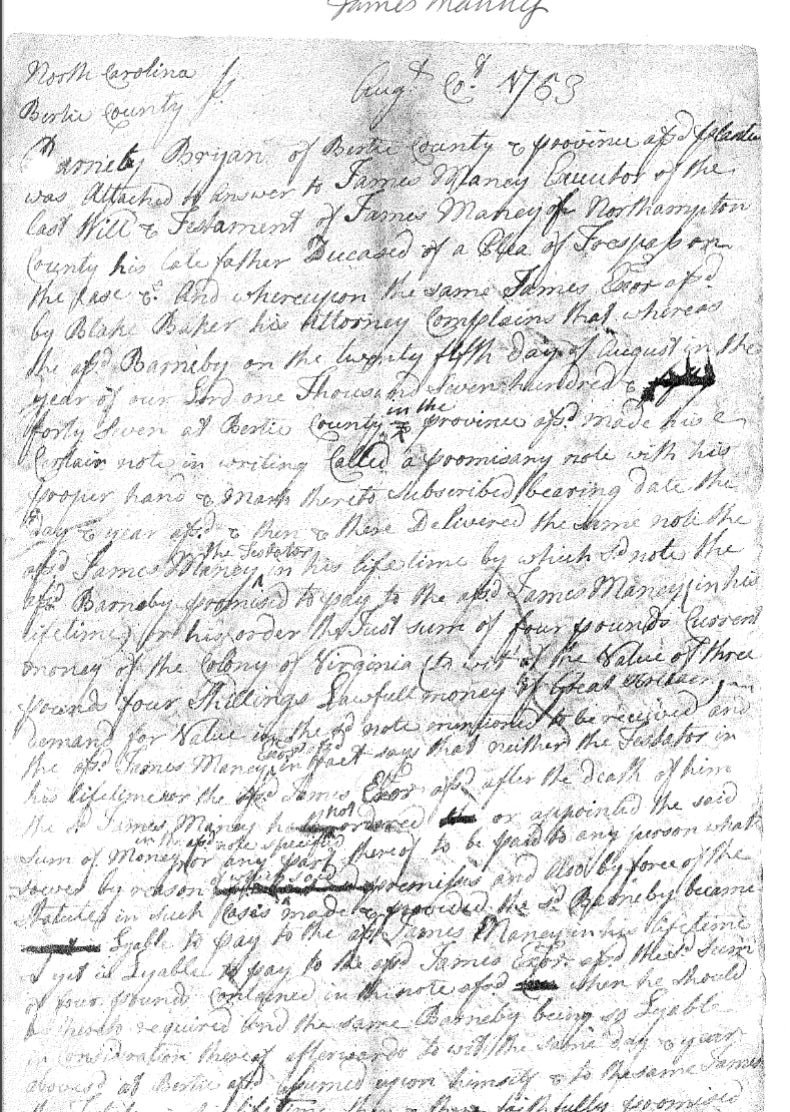 James Manney
North Carolina
Bertie County } ss
Augt Cot 1753
Barneby Bryan of Bertie County & province afsd planter
was Attached to answer to James Maney Executor of the
last Will & Testament of James Maney of Northampton
County his late father Deceased of a Plea of Trespass on
the Case &c. And whereupon the same James Exor afsd
by Blake Baker his Attorney Complains that whereas
the afsd Barneby on the twenty fifth day of August in the
year of our Lord one Thousand Seven hundred &
forty Seven at Bertie County in the province afsd made his
Certain note in writing Called a promisary note with his
proper hand & mark thereto Subscribed bearing date the
day & year afsd & then & there Delivered the same note the
afsd James Maney the Testator in his life time by which sd note the
afsd Barneby promised to pay to the afsd James Maney (in his
lifetime) or his order the Just sum of four pounds Current
money of the Colony of Virginia (to wit of the Value of three
pounds four Shillings Lawfull money of Great Britain) on
demand for Value in the sd note mentioned to be received and
the afsd James Maney Exor afsd in fact says that neither the Testator in
his lifetime or the afsd James Exor afsd after the death of him
the sd James Maney hath not ordered or appointed the said
Sum of Money in the afsd note specified nor any part thereof to be paid to any person what
soever by reason of which said premises and also by force of the
Statutes in such Cases made & provided the sd Barneby became
Lyable to pay to the afsd James Maney in his lifetime
& yet is Lyable to pay to the afsd James Exor. afsd the sd sum
of four pounds Contained in the note afsd when he should
be thereto required And the same Barneby being so Lyable
in Consideration thereof afterwards to wit the same day & year
abovesd at Bertie afsd assumed upon himself & to the same James
the Testator in his life time then & there faithfully promised